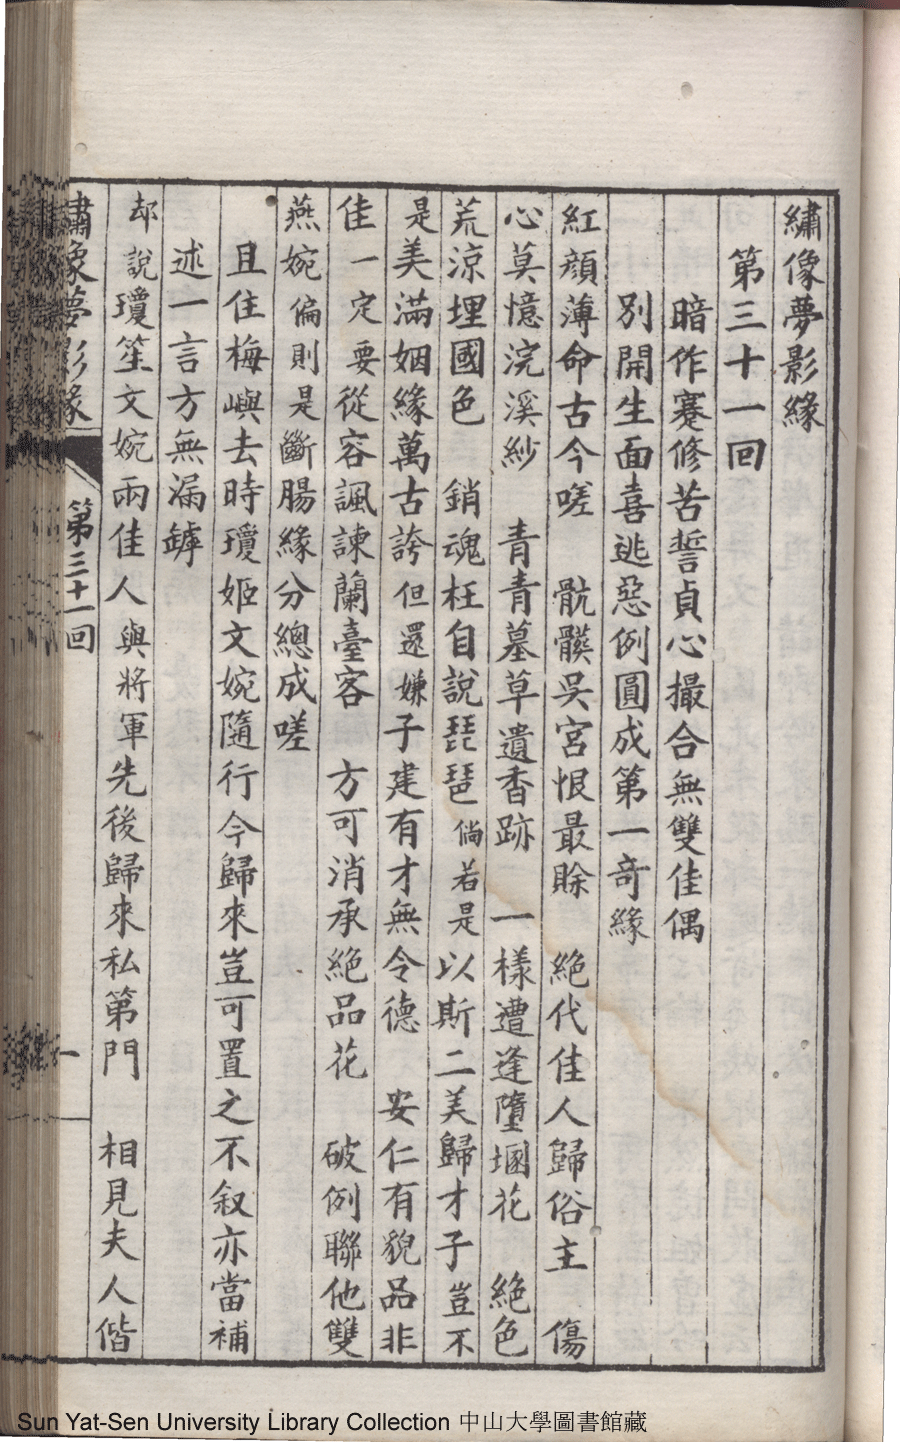 繡像夢影緣
第三十一回
暗作蹇修苦誓貞心撮合無雙佳偶
別開生面喜逃惡例圓成第一竒緣
紅顔薄命古今嗟 骯髒吳宮恨最賖 絕代佳人歸俗主 傷
心莫憶浣溪紗 青青墓草遺香跡 一樣遭逢墮溷花 絕色
荒涼埋國色 銷魂枉自說琵琶 倘若是以斯二美歸才子豈不
是美滿姻緣萬古誇但還嫌子建有才無令德 安仁有貌品非
佳一定要從容諷諫蘭臺客 方可消承絕品花 破例聯他雙
燕婉偏則是斷腸緣分總成嗟
且住梅嶼去時瓊姬文婉隨行今歸來豈可置之不叙亦當補
述一言方無漏罅
却說瓊笙文婉兩佳人與將軍先後歸來私第門 相見夫人偕
繡像夢影緣 第三十一回 一
Sun Yat-Sen University Library Collection 中山大學圖書館藏